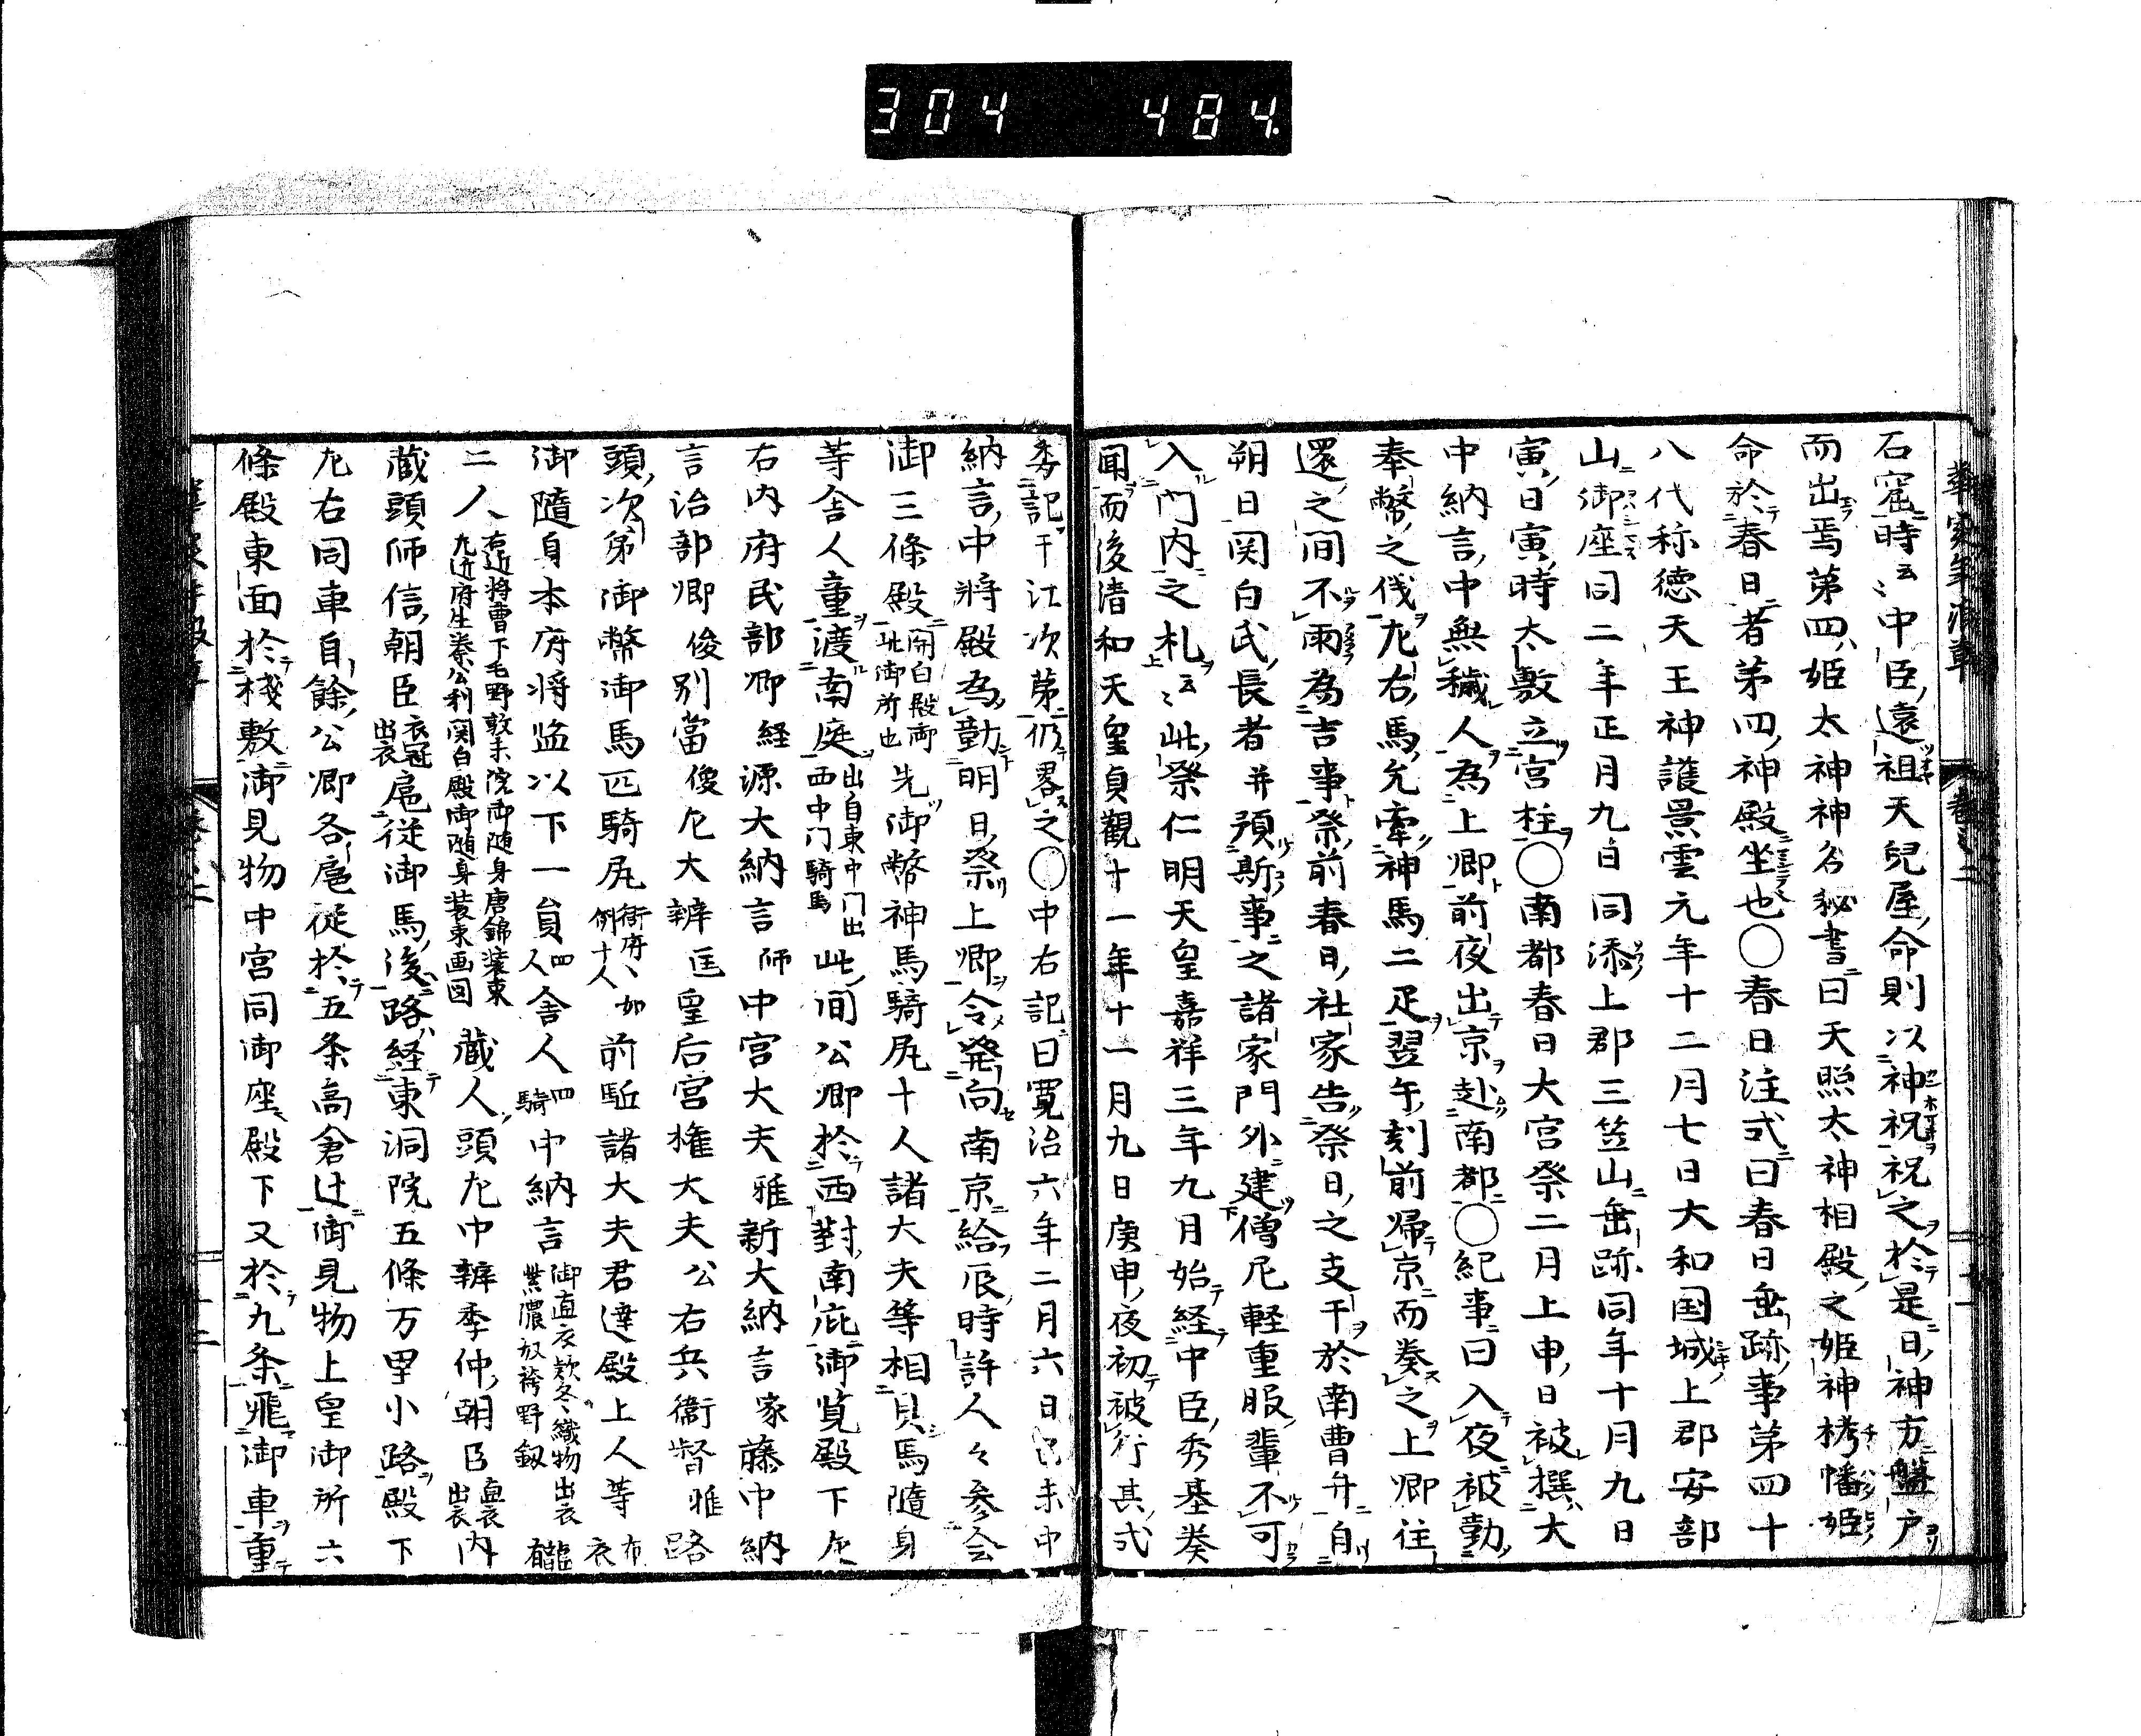 304 484.
石窟時云〻中臣遠祖天兒屋命則以神祝祝之於是日神方盤戸
而出焉第四姫太神神名秘書曰天照太神相殿之姫神栲幡姫
命於春日者第四神殿坐也〇春日注式曰春日垂跡事第四十
八代称徳天王神護景雲元年十二月七日大和国城上郡安部
山御座同二年正月九日同添上郡三笠山垂跡同年十月九日
寅日寅時太敷立宮柱〇南都春日大宮祭二月上申日被撰大
中納言中無穢人為上卿前夜出京赴南都〇紀事曰入夜被勤
奉幣之伐左右馬允牽神馬二疋翌午刻前帰京而奏之上卿往
還之間不雨為吉事祭前春日社家告祭日之支干於南曹弁自
朔日関白氏長者并預斯事之諸家門外建僧尼軽重服輩不可
入門内之札云〻此祭仁明天皇嘉祥三年九月始経中臣秀基奏
聞而後清和天皇貞觀十一年十一月九日庚申夜初被行其式
委記于江次第仍畧之〇中右記曰寛治六年二月六日己未中
納言中將殿為勤明日祭上卿令発向南京給辰時許人々参会
御三條殿関白殿御此御所也先御幣神馬騎尻十人諸大夫等相具馬隨身
等舎人童渡南庭出自東中門出西中門騎馬此間公卿於西對南庇御覧殿下左
右内府民部卿経源大納言師中宮大夫雅新大納言家藤中納
言治部卿俊別當俊左大辨匡皇后宮権大夫公右兵衞督雅路
頭次第御幣御馬匹騎尻衛府〻如例十人前駈諸大夫君達殿上人等布衣
御隨身本府将監以下一員四人舎人四騎中納言御直衣欵冬織物出衣紫濃奴袴野釼
二人右近将曹下毛野敦末院御随身唐錦装束左近府生秦公利関白殿御随身装束画図蔵人頭左中辨季仲朝臣直衣出衣内
蔵頭師信朝臣衣冠出衣扈従御馬後路経東洞院五條万里小路殿下
左右同車自餘公卿各扈従於五条高倉辻御見物上皇御所六
條殿東面於棧敷御見物中宮同御座殿下又於九条飛御車重